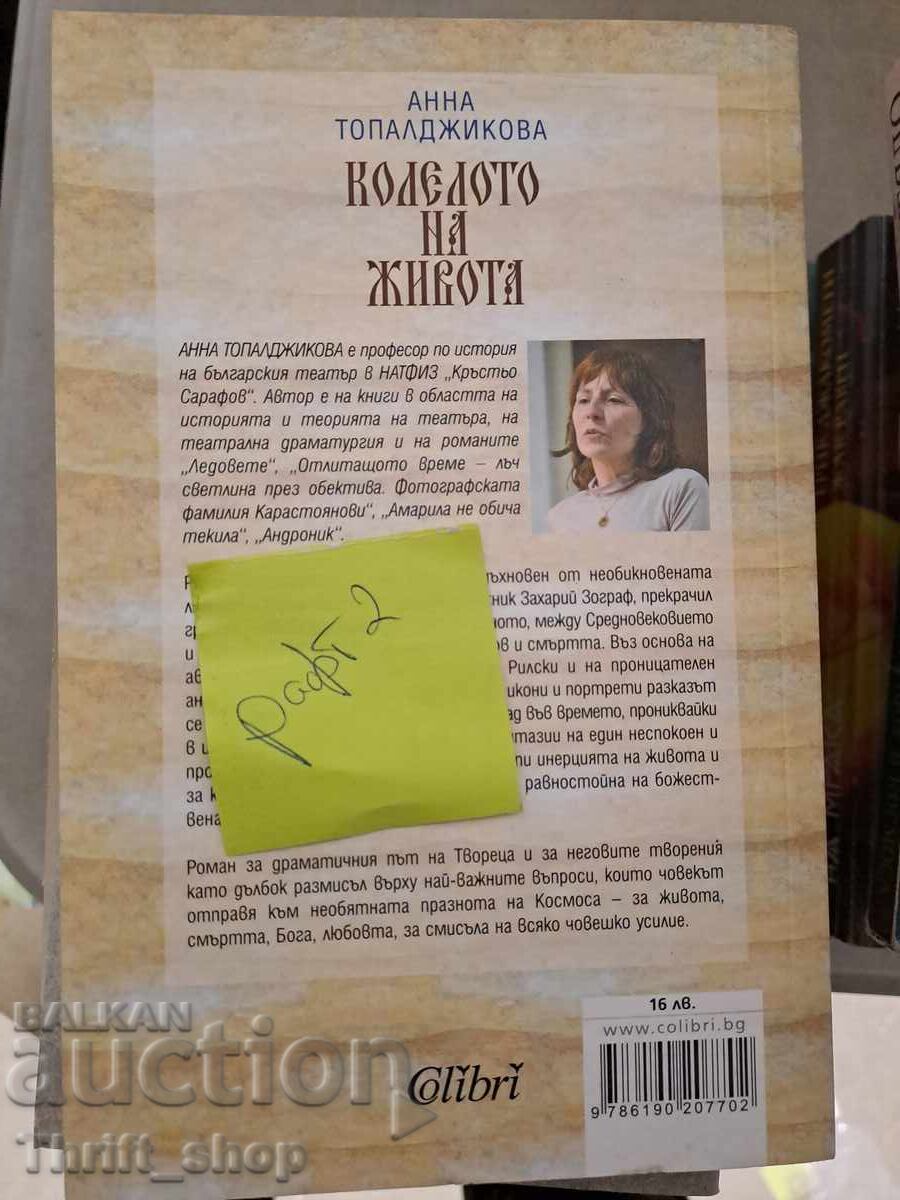 АННА
ТОПАЛДЖИКОВА
КОЛЕЛОТО
НА
ЖИВОТА
АННА ТОПАЛДЖИКОВА е професор по история
на българския театър в НАТФИЗ „Кръстьо
Сарафов“. Автор е на книги в областта на
историята и теорията на театъра, на
театрална драматургия и на романите
„Ледовете“, „Отлитащото време – лъч
светлина през обектива. Фотографската
фамилия Карастоянови“, „Амарила не обича
текила“, „Андроник“.
от необикновената
Захарий Зограф, прекрачил
между Средновековието
и и смъртта. Въз основа на
Рилски и на проницателен
икони и портрети разказът
се във времето, прониквайки
в на един неспокоен и
инерцията на живота и
за равностойна на божест-
вена
рафт 2
Роман за драматичния път на Твореца и за неговите творения
като дълбок размисъл върху най-важните въпроси, които човекът
отправя към необятната празнота на Космоса – за живота,
смъртта, Бога, любовта, за смисъла на всяко човешко усилие.
16 лв.
www.colibri.bg
Colibri
9 786190 207702
BALKAN
auction
Thrift_shop